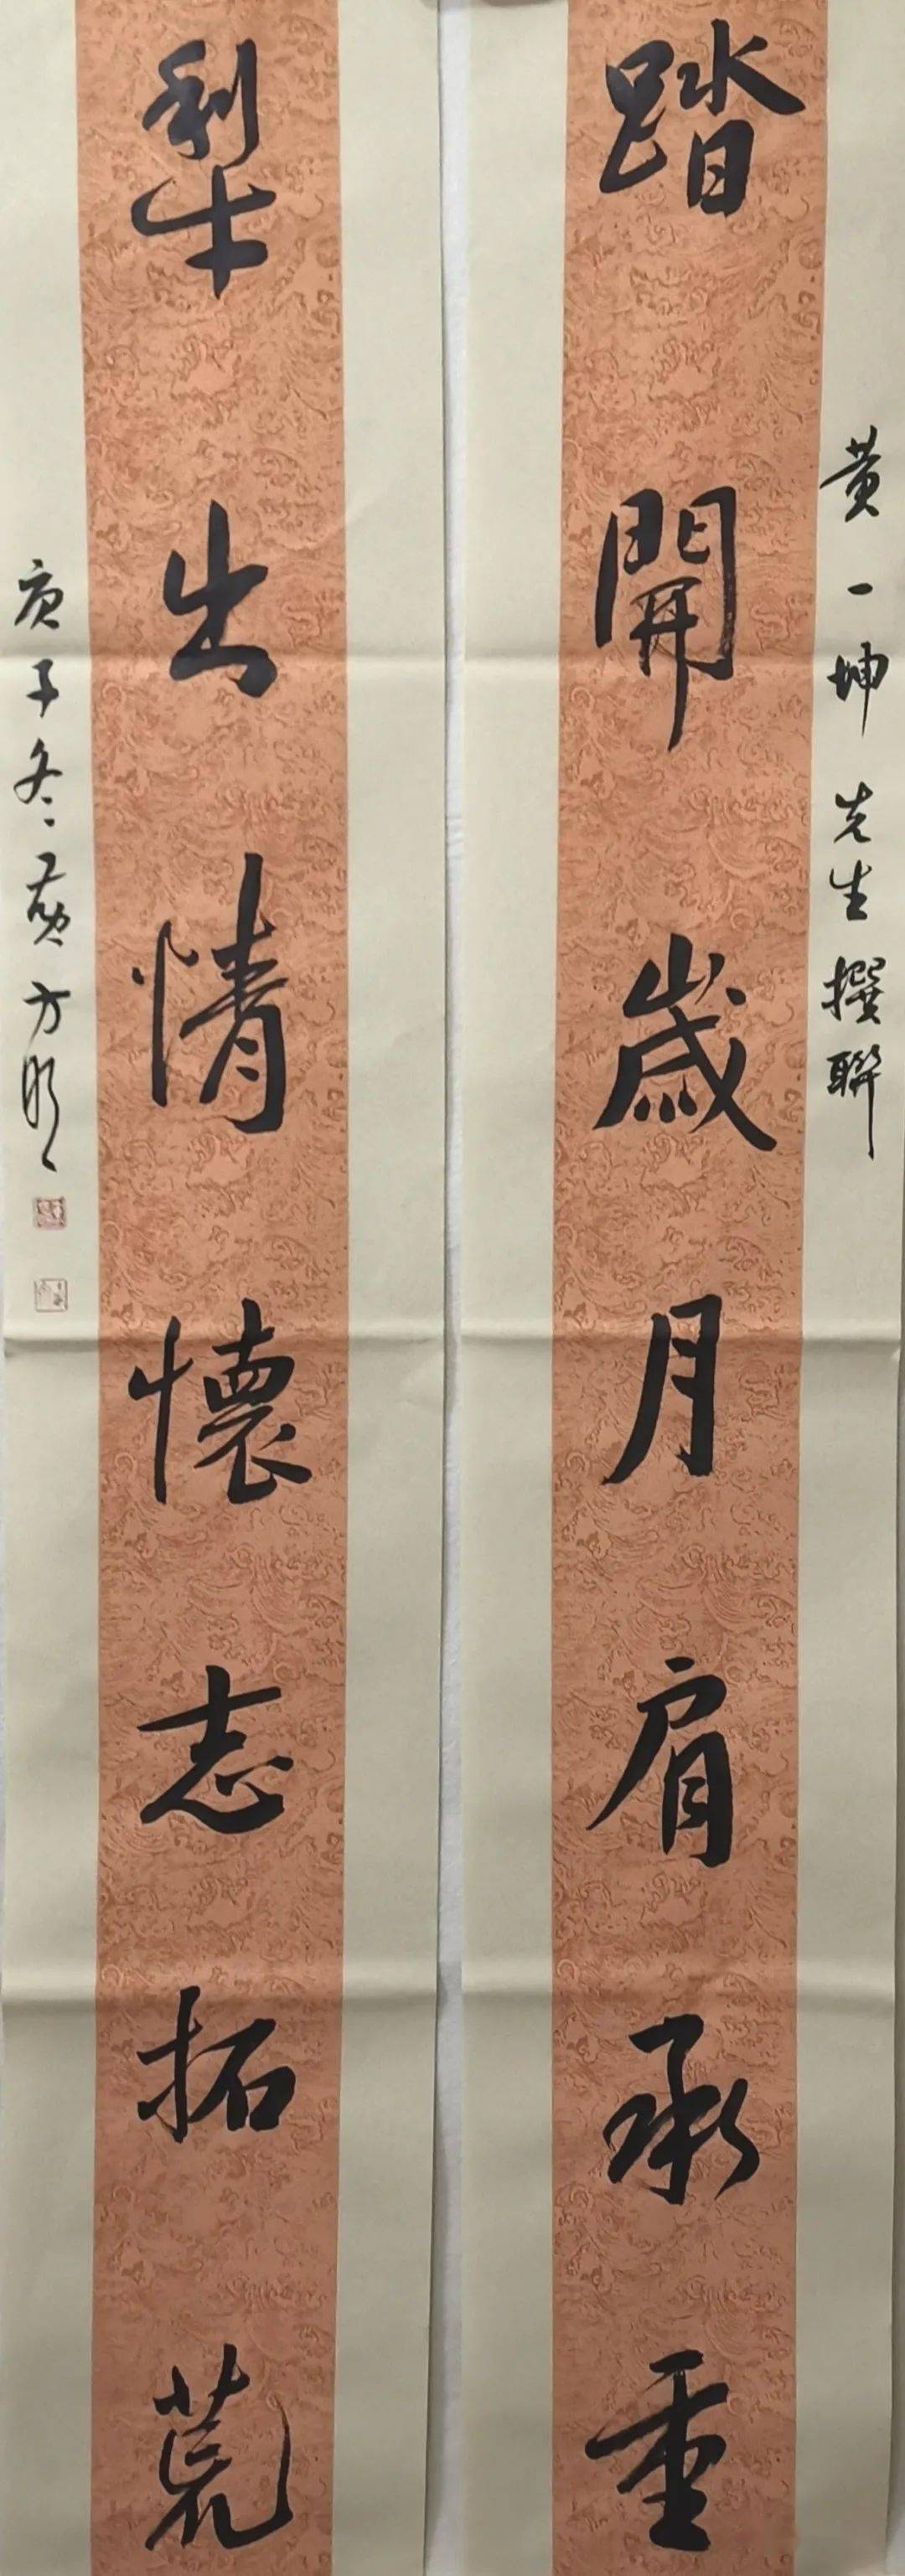 黄一坤先生撰聯
踏開歲月肩承重
犁出情懷志拓荒
庚子冬黄方